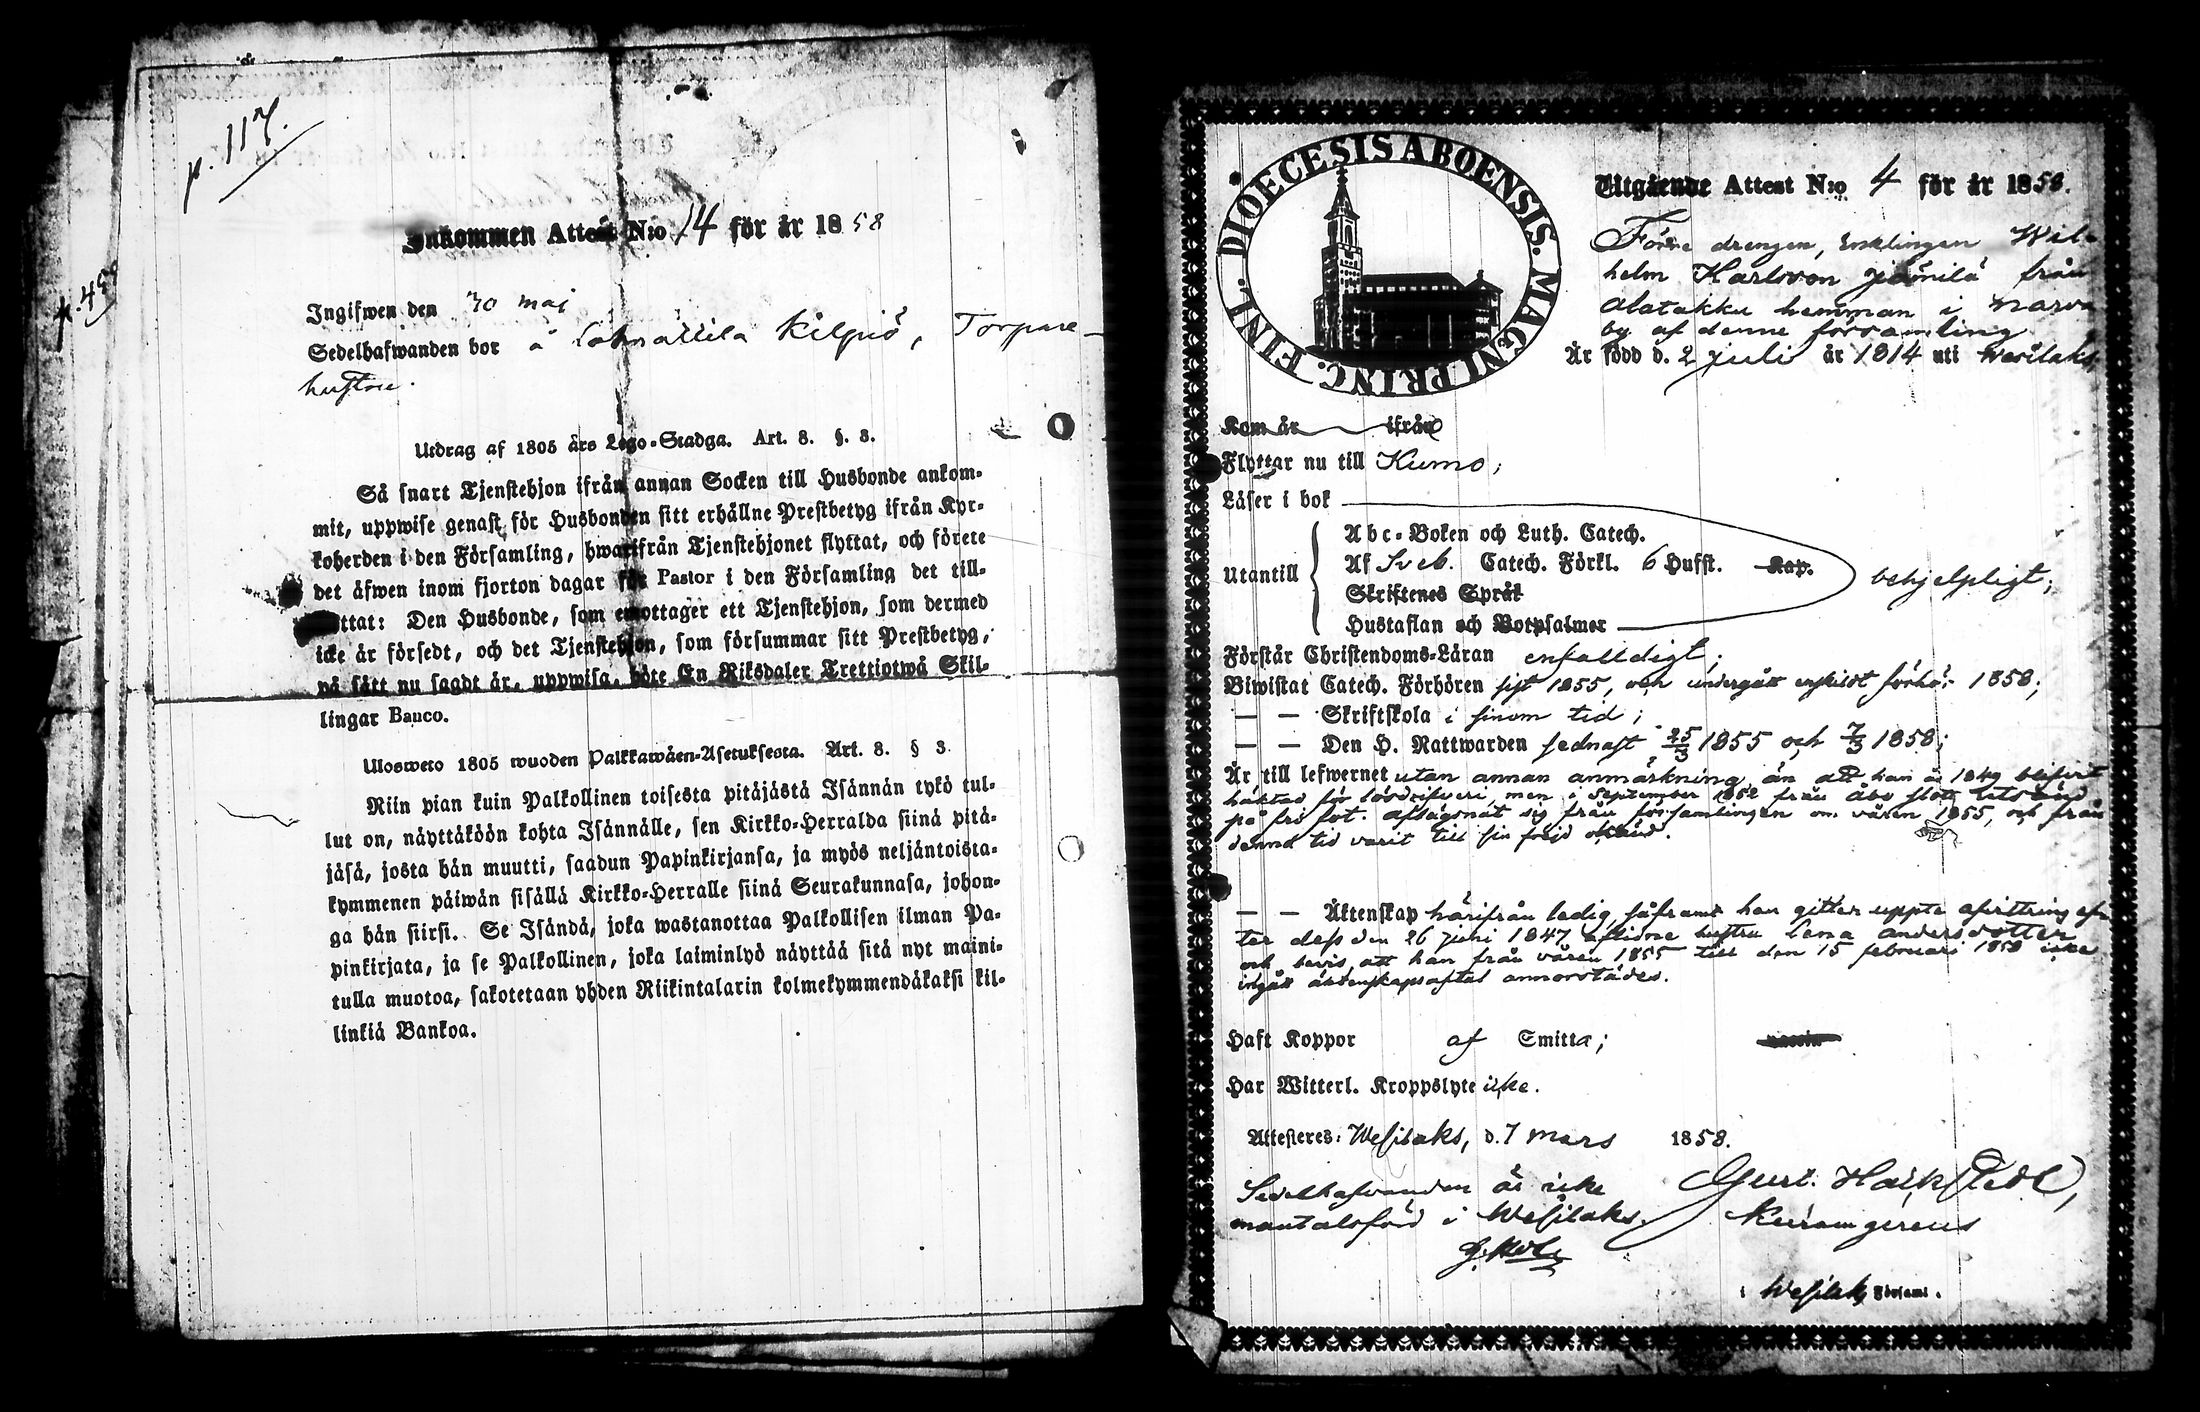 p. 117.
Inkommen Attest N:o 14 för år 1858
Ingifwen den 30 maj
Sedelhafwanden bor å Lahnallila Kilpiö, Torpare
hustru.
Utdrag af 1805 års Lego-Stadga. Art. 8. §. 3.
Så snart Tjenstehjon ifrån annan Socken till Husbonde ankom-
mit, uppwise genast för Husbonden sitt erhållne Prestbetyg ifrån Kyr-
koherden i den Församling, hwarifrån Tjenstehjonet flyttat, och förete
det äfwen inom fjorton dagar för Pastor i den Församling det till-
flyttat: Den Husbonde, som emottager ett Tjenstehjon, som dermed
icke är försedt, och det Tjenstehjon, som försummar sitt Prestbetyg,
på sätt nu sagdt är, uppwisa, böte En Riksdaler Trettiotwå Skil-
lingar Banco.
Ulosweto 1805 wuoden Palkkawäen-Asetuksesta. Art. 8. § 3.
Niin pian kuin Palkollinen toisesta pitäjästä Isännän tykö tul-
lut on, näyttäköön kohta Isännälle, sen Kirkko-Herralda siinä pitä-
jäsä, josta hän muutti, saadun Papinkirjansa, ja myös neljäntoista-
kymmenen päiwän sisällä Kirkko-Herralle siinä Seurakunnasa, johon-
ga hän siirsi. Se Isändä, joka wastanottaa Palkollisen ilman Pa-
pinkirjata, ja se Palkollinen, joka laiminlyö näyttää sitä nyt maini-
tulla muotoa, sakotetaan yhden Riikintalarin kolmekymmendäkaksi kil-
linkiä Bankoa.
DIOECESIS ABOENSIS. MAGNI PRINC. FINL.
Utgående Attest N:o 4 för år 1858.
Förre drengen, enklingen Wil-
helm Karlsson Jämilä från
Alatakku hemman i Narva
by af denne församling
Är född d. 2 juli år 1814 uti Wesilaks
Kom år ifrån
Flyttar nu till Kumo;
Läser i bok
Utantill
Abc-Boken och Luth. Catech.
Af Sveb. Catech. Förkl. 6 Hufst. Kap.
Skriftenes Språk
Hustaflan och Botpsalmer
behjelpligt;
Förstår Christendoms-Läran enfalldigt;
Biwistat Catech. Förhören sist 1855, och undergått enskildt förhör 1858;
— — Skriftskola i sinom tid;
— — Den H. Nattwarden sednast 25/3 1855 och 7/3 1858;
Är till lefwernet utan annan anmärkning än att han år 1849 blifvit
häktad för lösdrifveri, men i September 1852 från Åbo slott
på fri fot. Aflägsnat sig från församlingen om våren 1855, och från
denna tid varit till sin frejd okänd.
— — Äktenskap härifrån ledig, såframt han gitter uppte afvittring ef-
ter dess den 26 juni 1847 aflidne hustru Lena Andersdotter
och bevis att han från våren 1855 till den 15 februari 1858 icke
ingått äktenskapsaftal annorstädes.
Haft Koppor af Smitta;
Har Witterl. Kroppslyte icke.
Attesteres: Wesilaks, d. 7 mars 1858.
Sedelhafvanden är icke
mantalsförd i Wesilaks.
Gust. Hark
i Wesilaks Församl.